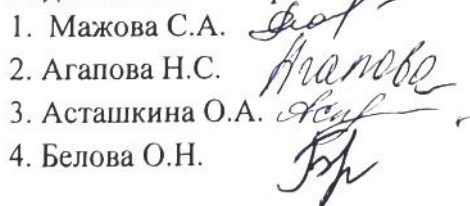 1. Мажова С.А.
2. Агапова Н.С. Агапова
3. Асташкина О.А.
4. Белова О.Н.